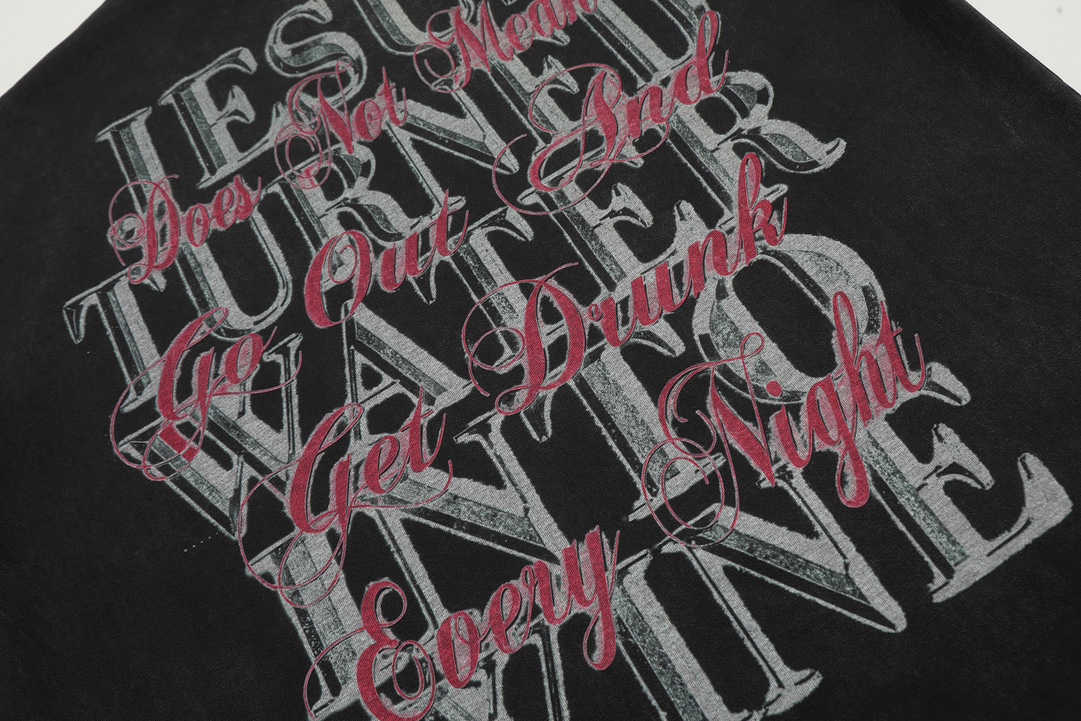 JESUS
TURNED
WATER
INTO
WINE
Does Not Mean
Go Out And
Get Drunk
Every Night